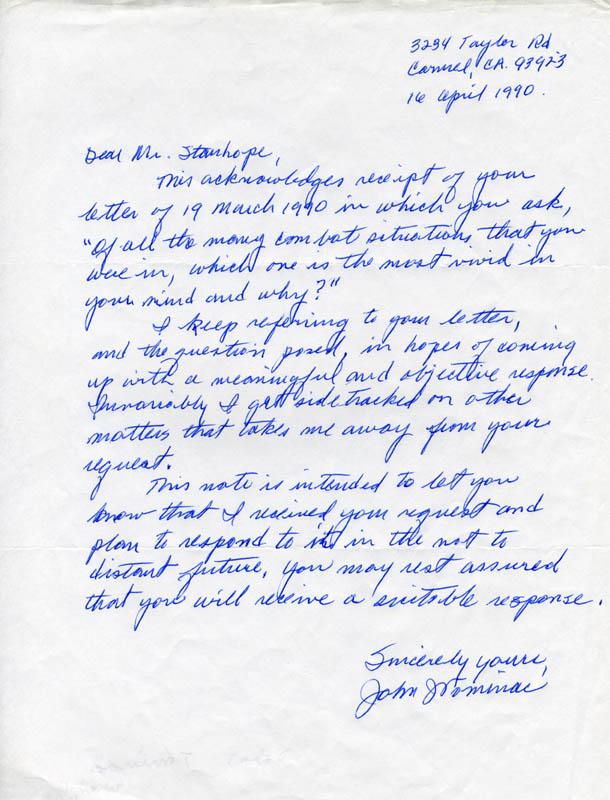 3234 Taylor Rd
Carmel, CA. 93923
16 April 1990.
Dear Mr. Stanhope,
This acknowledges receipt of your
letter of 19 March 1990 in which you ask,
"Of all the many combat situations that you
were in, which one is the most vivid in
your mind and why?"
I keep referring to your letter,
and the question posed, in hopes of coming
up with a meaningful and objective response.
Invariably I get sidetracked on other
matters that takes me away from your
request.
This note is intended to let you
know that I received your request and
plan to respond to it in the not to
distant future. You may rest assured
that you will receive a suitable response.
Sincerely yours,
John